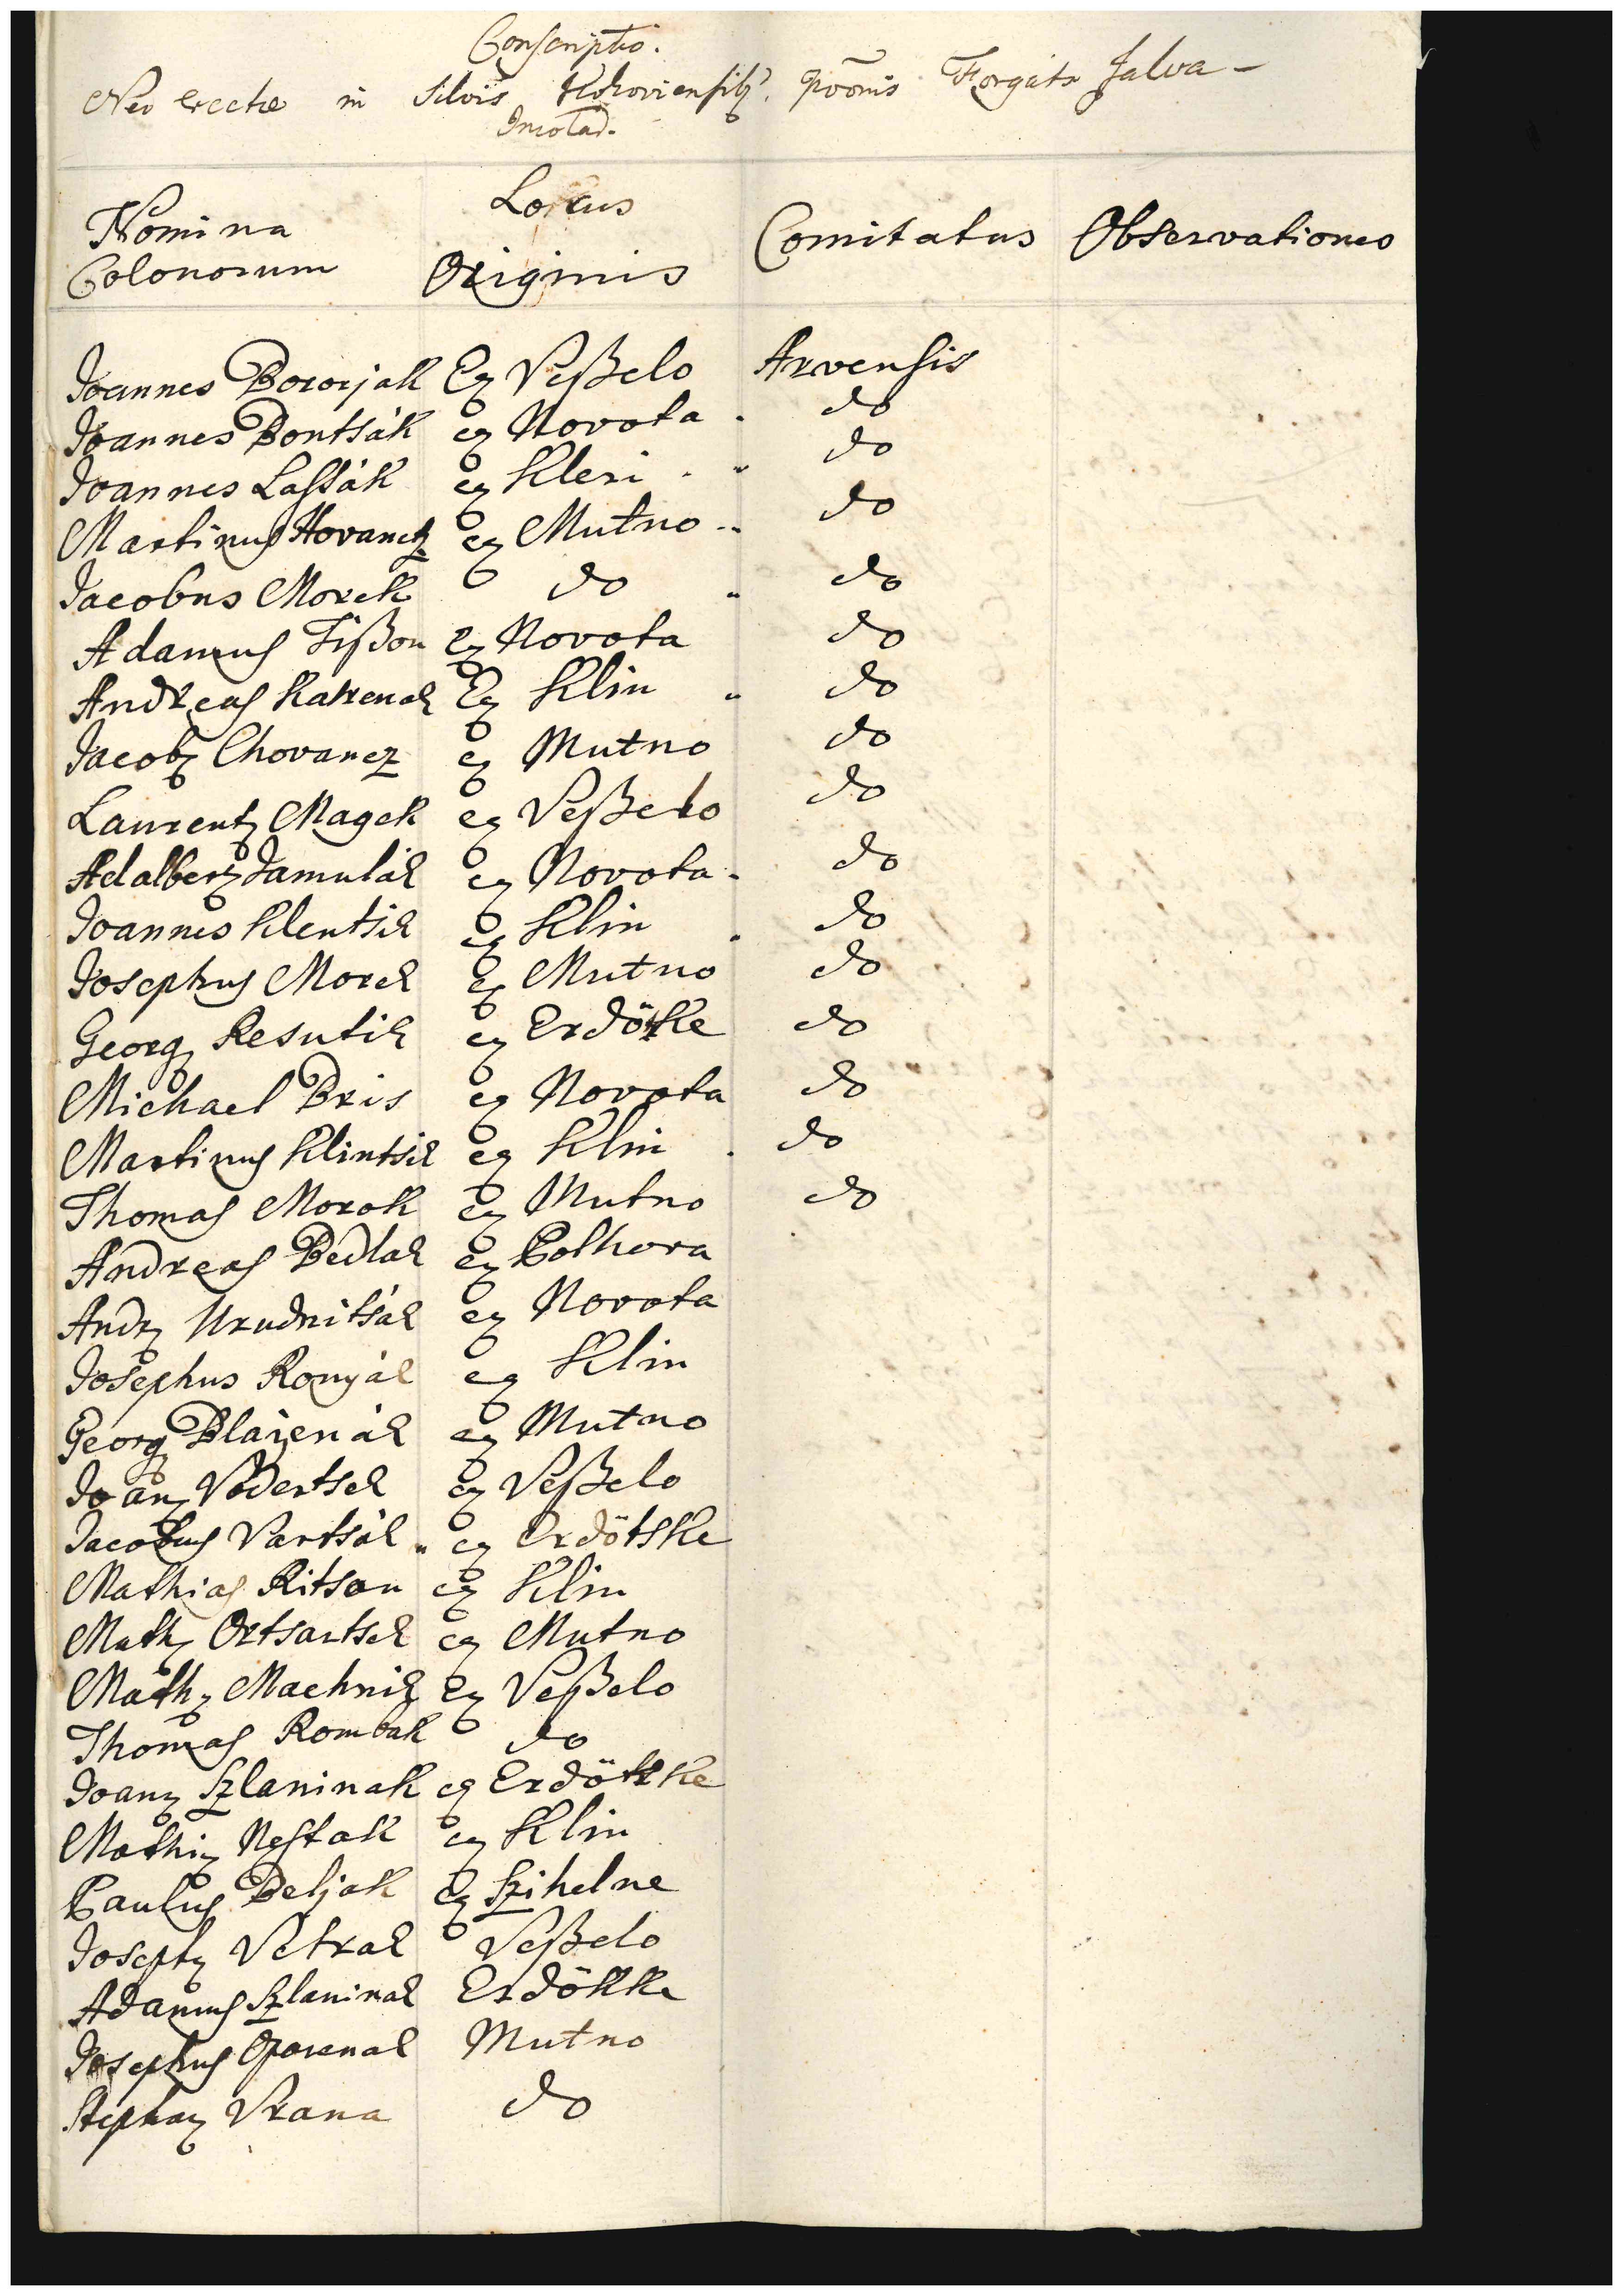 Conscriptio.
Neo erectae in Silvis Kokoviensibꝰ. pōonis Forgáts Falva –
Incolar.
Nomina Colonorum Locus Originis Comitatus Observationes
Joannes Bororjak Ex Veßelo Arvensis
Joannes Bontsák ex Novota . do
Joannes Lassák ex Kleri . „ do
Martinus Hovanetz ex Mutno „ do
Jacobus Morek do „ do
Adamus Fißon ex Novota do
Andreas Katrenak Ex Klin „ do
Jacobꝰ Chovanez ex Mutno do
Laurentꝰ Magek ex Veßelo do
Adalbertꝰ Jamulák ex Novota . do
Joannes Klentsik ex Klin . do
Josephus Morek ex Mutno do
Georgꝰ Resutik ex Erdötke do
Michael Bris ex Novota do
Martinus Klintsik ex Klin . do
Thomas Morok ex Mutno do
Andreas Bedlak ex Polhora
Andrꝰ Hrudnitsák ex Novota
Josephus Ronyák ex Klin
Georgꝰ Blaženák ex Mutno
Joanꝰ Vodertsek ex Veßelo
Jacobus Vartsák „ ex Erdötske
Mathias Ritson ex Klin
Mathꝰ Ortsartsek ex Mutno
Mathꝰ Machnik Ex Veßelo
Thomas Rombak do
Joanꝰ Szlaninak ex Erdötske
Mathiꝰ Nestak ex Klin
Paulus Beljak Ex Szihelne
Josephꝰ Vetrak Veßelo
Adamus Szlaninak Erdökke
Josephus Oparenak Mutno
Stephanꝰ Vrana do